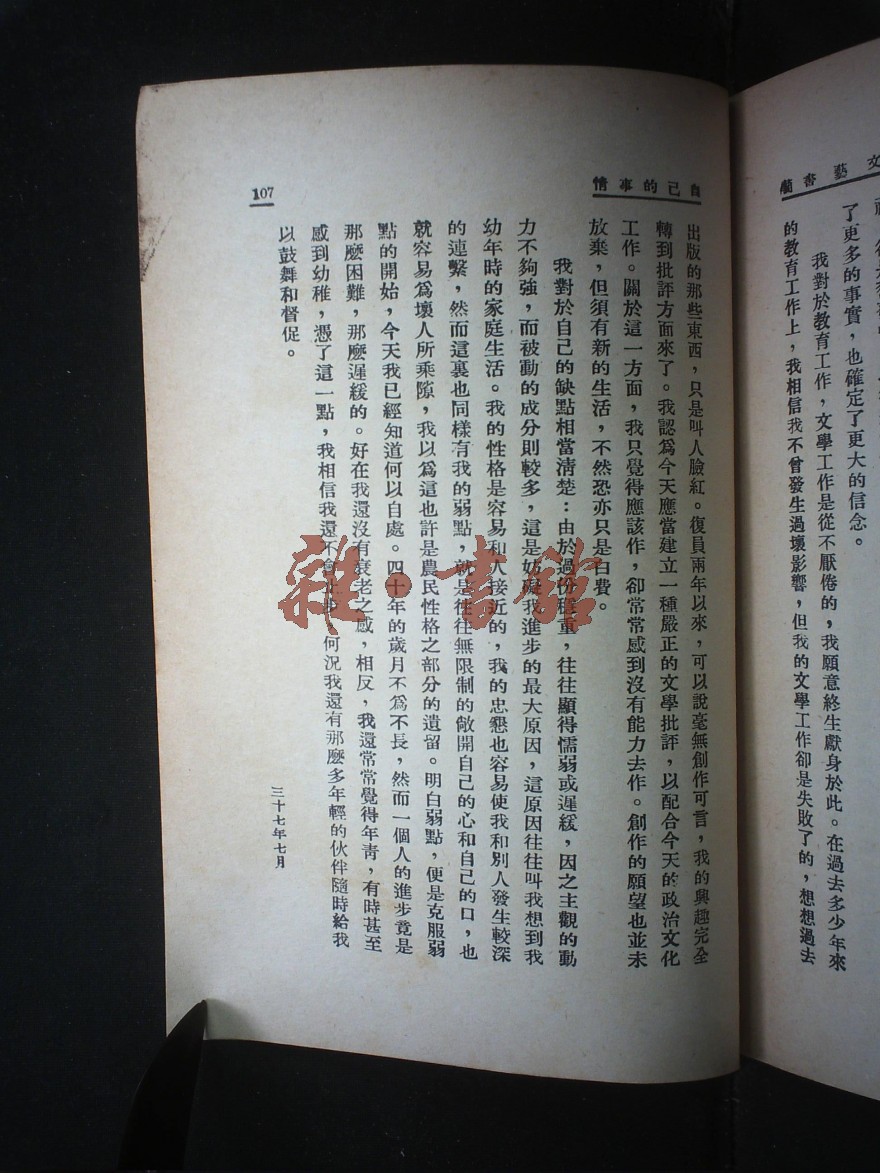 文藝書簡
了更多的事實，也確定了更大的信念。
我對於教育工作，文學工作是從不厭倦的，我願意終生獻身於此。在過去多少年來
的教育工作上，我相信我不曾發生過壞影響，但我的文學工作卻是失敗了的，想想過去
自己的事情
出版的那些東西，只是叫人臉紅。復員兩年以來，可以說毫無創作可言，我的興趣完全
轉到批評方面來了。我認爲今天應當建立一種嚴正的文學批評，以配合今天的政治文化
工作。關於這一方面，我只覺得應該作，卻常常感到沒有能力去作。創作的願望也並未
放棄，但須有新的生活，不然恐亦只是白費。
我對於自己的缺點相當清楚：由於過份穩重，往往顯得懦弱或遲緩，因之主觀的動
力不夠強，而被動的成分則較多，這是妨礙我進步的最大原因，這原因往往叫我想到我
幼年時的家庭生活。我的性格是容易和人接近的，我的忠懇也容易使我和別人發生較深
的連繫，然而這裏也同樣有我的弱點，就是往往無限制的敞開自己的心和自己的口，也
就容易爲壞人所乘隙，我以爲這也許是農民性格之部分的遺留。明白弱點，便是克服弱
點的開始，今天我已經知道何以自處。四十年的歲月不爲不長，然而一個人的進步竟是
那麼困難，那麼遲緩的。好在我還沒有衰老之感，相反，我還常常覺得年青，有時甚至
感到幼稚，憑了這一點，我相信我還不會 何況我還有那麼多年輕的伙伴隨時給我
以鼓舞和督促。
三十七年七月
107
雜·書館